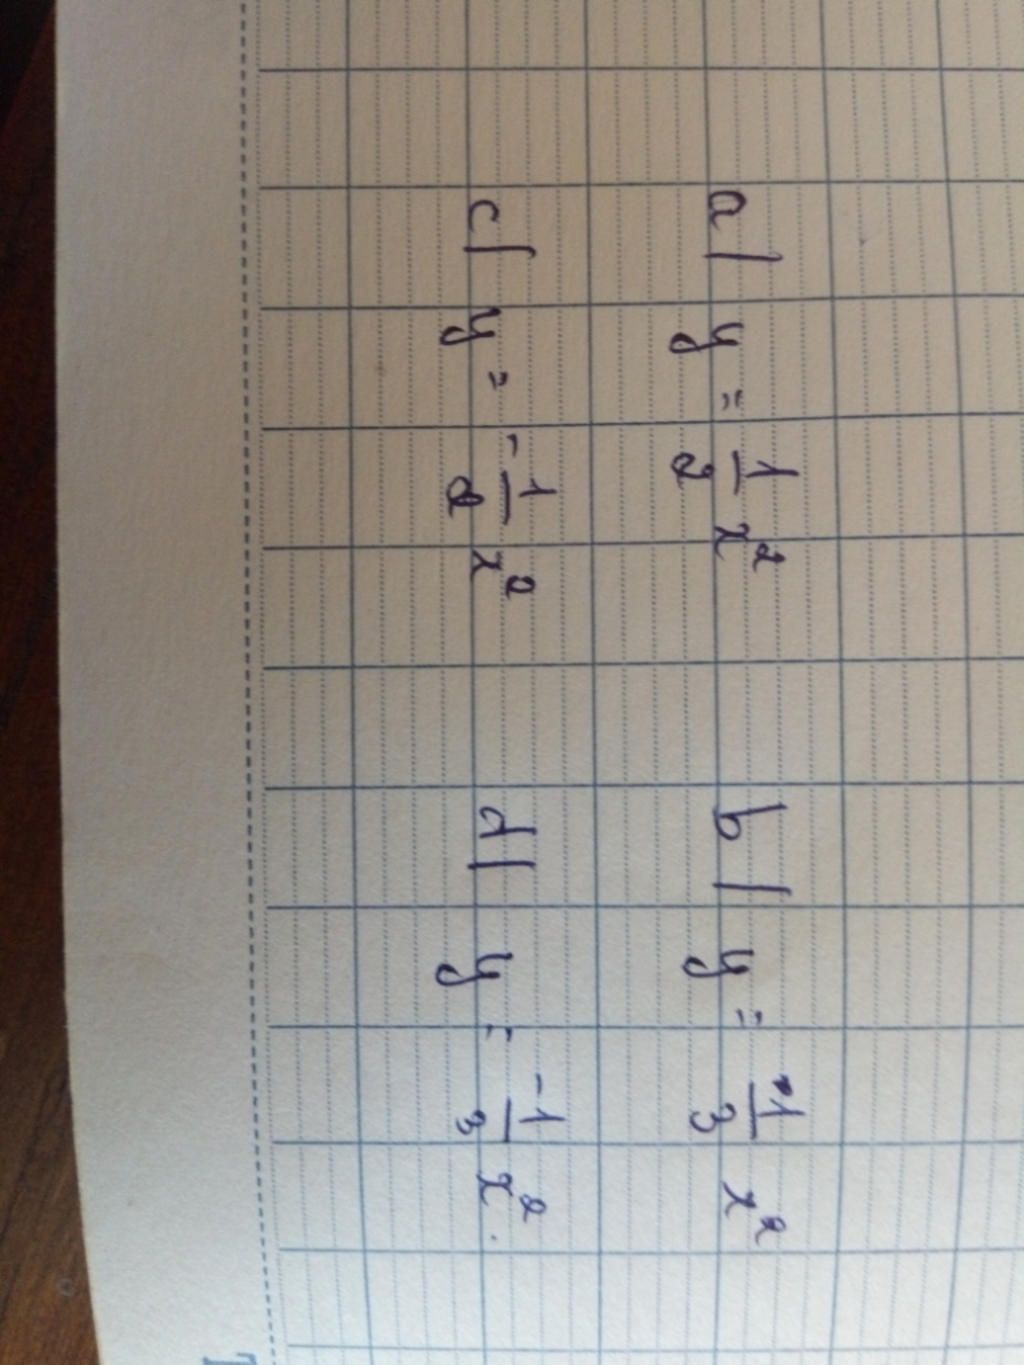 a/ y = 1/2 x² b/ y = 1/3 x²
c/ y = -1/2 x² d/ y = -1/3 x²